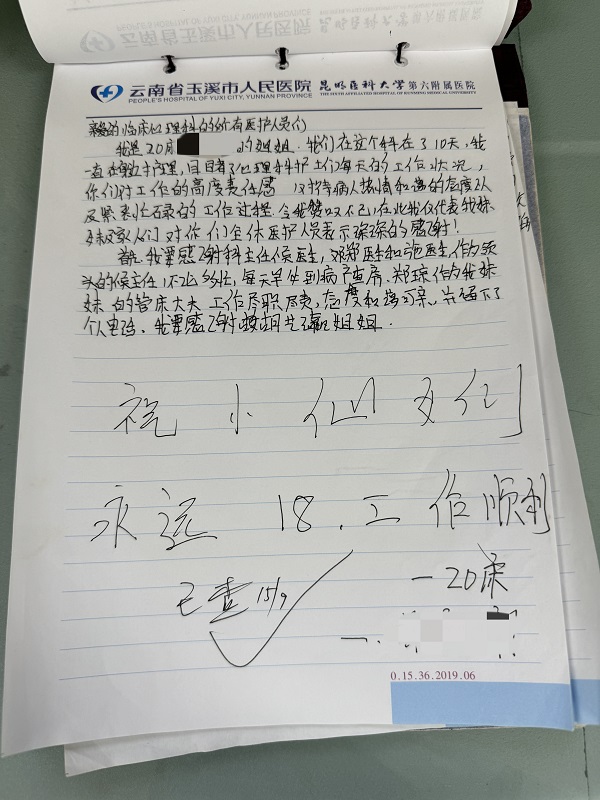 云南省玉溪市人民医院 昆明医科大学第六附属医院
PEOPLE'S HOSPITAL OF YUXI CITY, YUNNAN PROVINCE THE SIXTH AFFILIATED HOSPITAL OF KUNMING MEDICAL UNIVERSITY
亲爱的临床心理科的所有医护人员们
我是20床 的姐姐. 我们在这个科住了10天, 我
一直在陪护理, 目睹了心理科护士们每天的工作状况,
你们对工作的高度责任感 以
及紧张忙碌的工作过程. 令我赞叹不已, 在此我仅代表我妹
妹及家人们 对你们全体医护人员表示深深的感谢!
首先. 我要感谢科主任侯医生, 邓郑医生和施医生, 作为领
头的侯主任, 不止多位, 每天早上到病房查房. 郑琼作为我妹
妹的管床大夫 工作尽职尽责, 态度和蔼可亲. 并留下了
个人电话. 我要感谢 姐姐.
祝小仙女们
永远18. 工作顺利
已查 15/9
—20床
0.15.36.2019.06